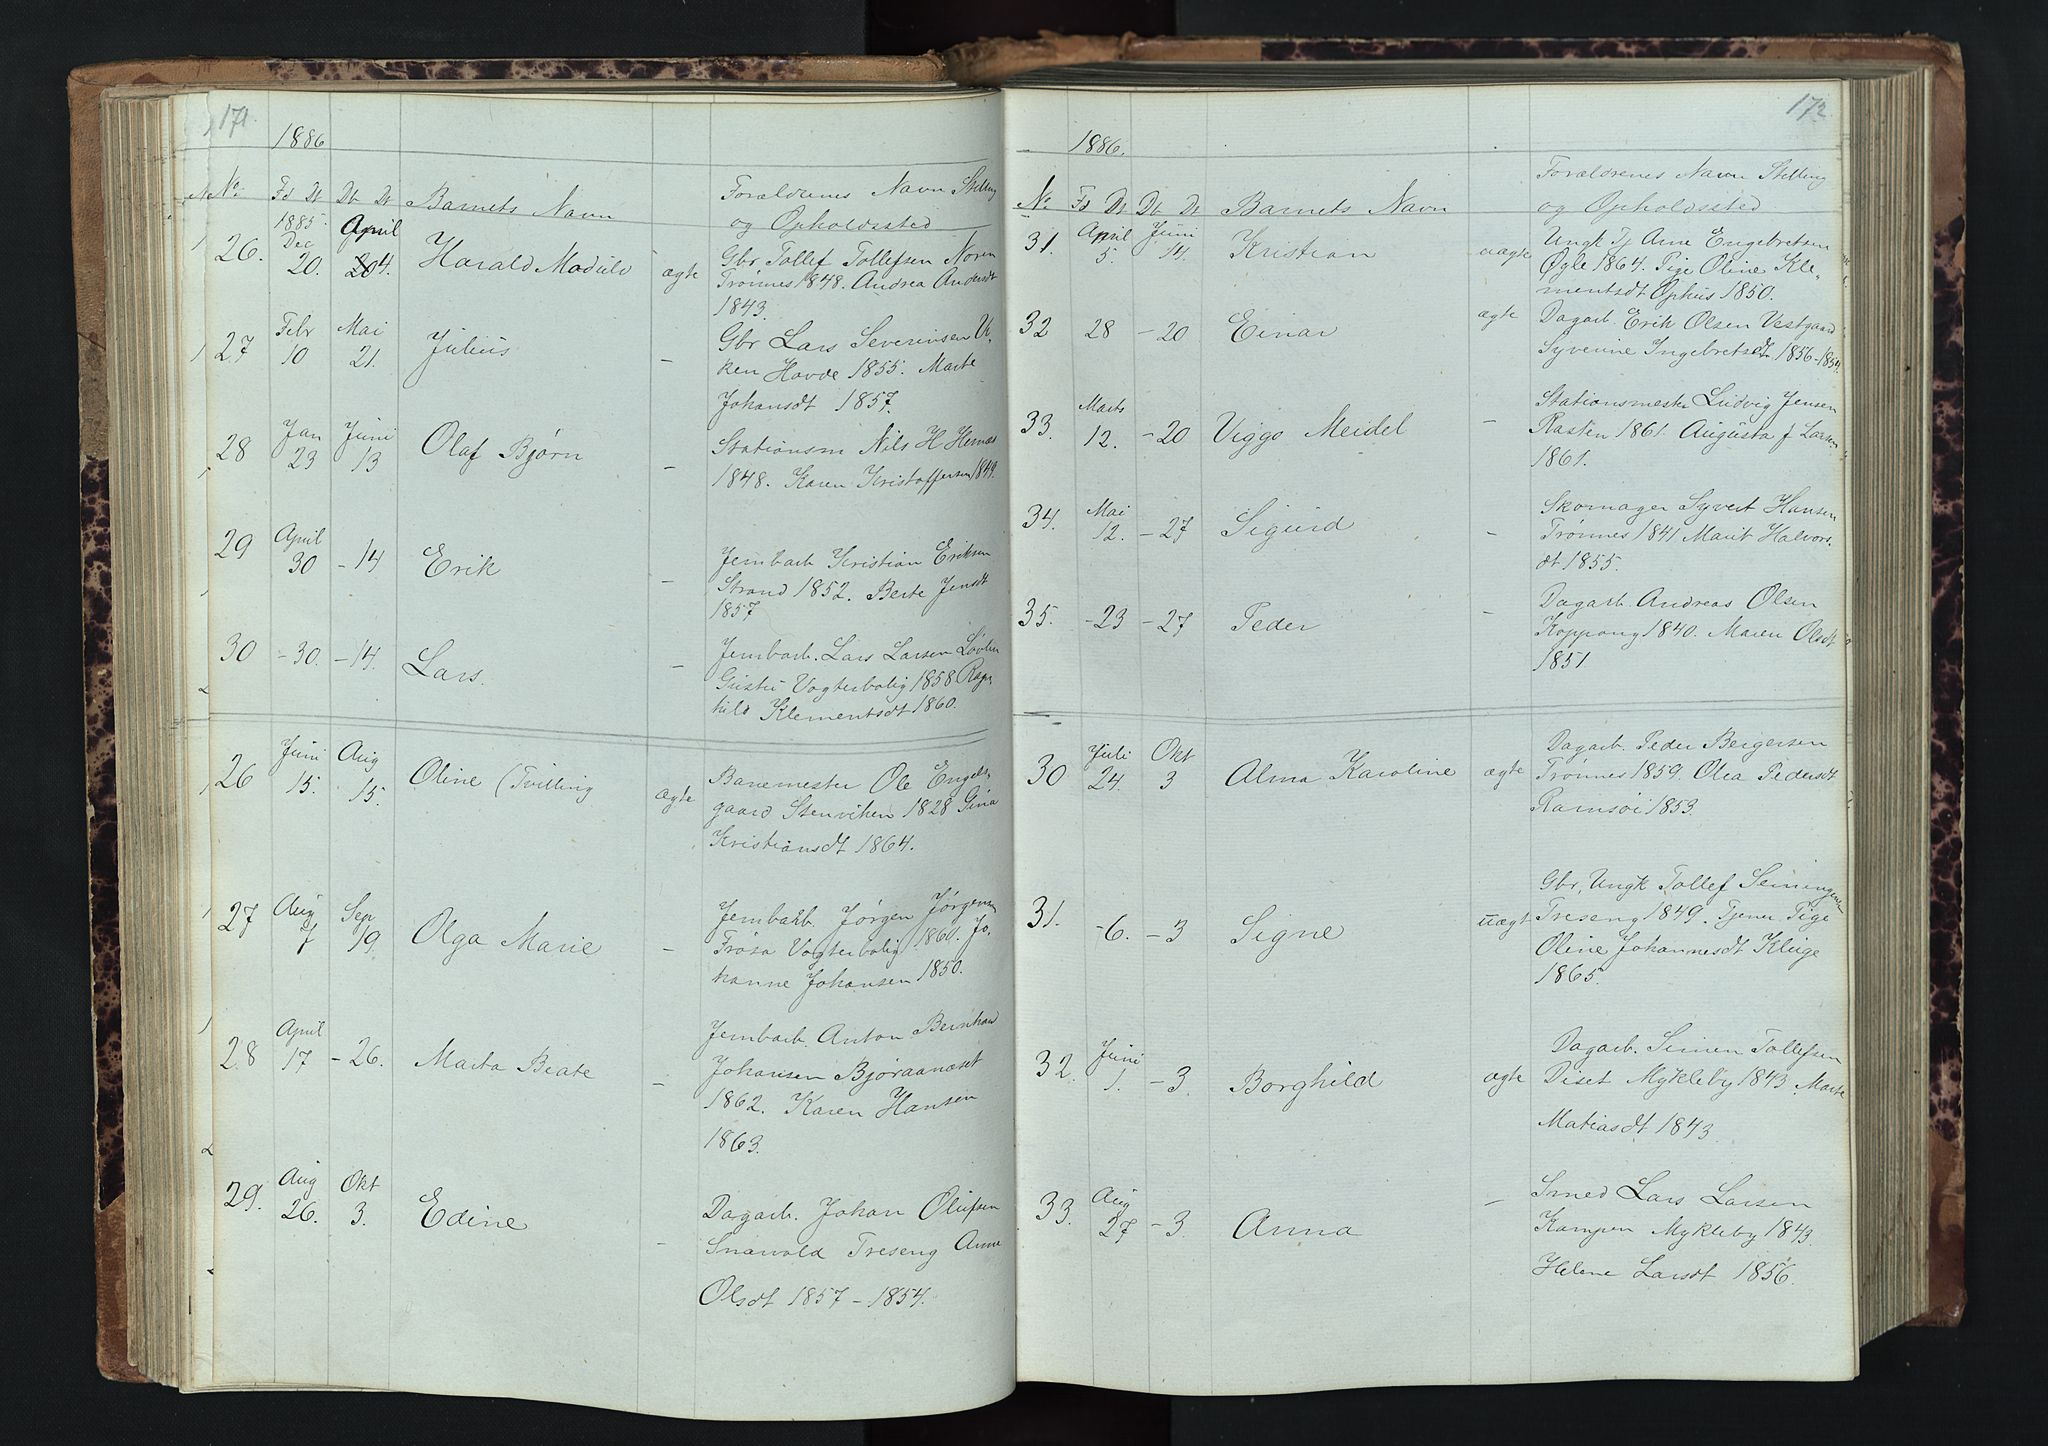 171.
1886
No. Fd Dt Db Dt Barnets Navn Forældrenes Navn Stilling
og Opholdssted
1885.
26. Dec 20. April 4. Harald Modulv ægte Gbr Tollef Tollefsen Noren
Trønnes 1848. Andrea Andersdt
1843.
27 Febr 10 Mai 21. Julius - Gbr Lars Severinsen Vi-
ken Hovde 1855. Marte
Johansdt 1857.
28 Jan 23 Juni 13 Olaf Bjørn - Stationsm Nils H Hernæs
1848. Karen Kristoffersen 1849.
29 April 30 - 14 Erik - Jernbarb Kristian Eriksen
Strand 1852. Berte Jensdt
1857
30 - 30. - 14. Lars. - Jernbarb. Lars Larsen Løvlien
Vogterbolig 1858 Ragn-
hild Klementsdt 1860.
26 Juni 15. Aug 15. Oline (Tvilling ægte Banemester Ole Engels-
gaard Stenviken 1828 Gina
Kristiansdt 1864.
27 Aug 7 Sep 19. Olga Marie - Jernbarb. Jørgen Jørgensen
Frøsa Vogterbolig 1860. Jo-
hanne Johansen 1850.
28 April 17 - 26. Marta Beate - Jernbarb. Anton Bernhard
Johansen Bjøraanæset
1862. Karen Hansen
1863.
29. Aug 26. Okt 3. Edine - Dagarb. Johan Olufsen
Snøvold Treseng Anne
Olsdt 1857 - 1854.
172
1886.
No Fd Dt Db Dt Barnets Navn Forældrenes Navn Stilling
og Opholdssted
31. April 5. Juni 14. Kristian uægte Ungk Tj Arne Engebretsen
Øgle 1864. Pige Oline Kle-
mentsdt Ophus 1850.
32 28 - 20 Einar ægte Dagarb. Erik Olsen Vestgaard
Syverine Ingebretsdt 1856-1854.
33. Marts 12. - 20 Viggo Meidel - Stationsmester Ludvig Jensen
Rasten 1861. Augusta f Larsen
1861.
34. Mai 12. - 27 Sigurd - Skomager Syvert Hansen
Trønnes 1841 Marit Halvors-
dt 1855.
35. - 23 - 27 Peder - Dagarb. Andreas Olsen
Koppang 1840. Maren Olsdt
1851.
30 Juli 24. Okt 3 Alma Karoline ægte Dagarb. Peder Bergersen
Trønnes 1859. Olea Pedersdt
Ramsøi 1853.
31. - 6. - 3 Signe uægt Gbr, Ungk Tollef Semmingsen
Treseng 1849. Tjener Pige
Oline Johannesdt Kluge
1865.
32. Juni 1. - 3. Borghild ægte Dagarb. Simen Tollefsen
Diset Mykleby 1843 Marte
Matiasdt 1843.
33. Aug 27 - 3. Anna - Smed Lars Larsen
Kampen Mykleby 1843.
Helene Larsdt 1856.